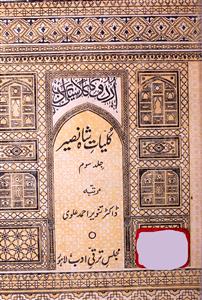 اردو کا کلاسیکی ادب
کلیاتِ شاہ نصیر
جلد سوم
مرتبہ
ڈاکٹر تنویر احمد علوی
مجلس ترقی ادب لاہور